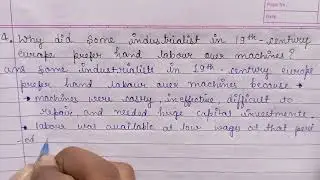 4. Why did some industrialist in 19th century
europe prefer hand labour over machines?
ans some industrialists in 19th century europe
prefer hand labour over machines because →
→ machines were costly, ineffective, difficult to
repair and needed huge capital investments.
• labour was available at low wages at that peri
-od